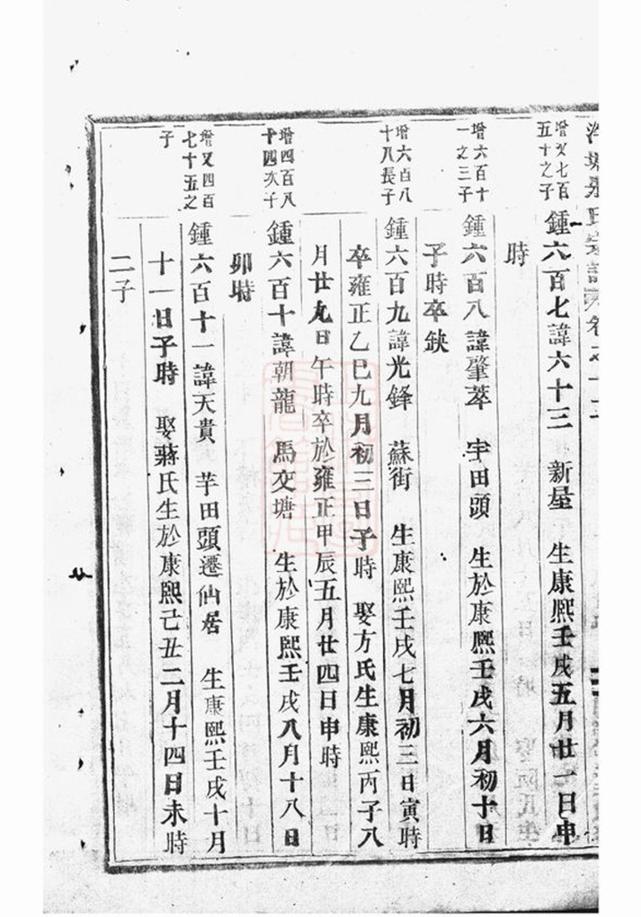 增又七百
五十之子
鍾六百七諱六十三 新屋 生康熙壬戌五月廿一日申
時
增六百十
一之三子
鍾六百八諱肇萃 芋田頭 生於康熙壬戌六月初十日
子時卒缺
增六百八
十八長子
鍾六百九諱光鋒 蘇街 生康熙壬戌七月初三日寅時
卒雍正乙巳九月初三日子時 娶方氏生康熙丙子八
月廿九日午時卒於雍正甲辰五月廿四日申時
增四百八
十四次子
鍾六百十諱朝龍 馬交塘 生於康熙壬戌八月十八日
卯時
增又四百
七十五之
子
鍾六百十一諱天貴 芋田頭遷仙居 生康熙壬戌十月
十一日子時 娶蔣氏生於康熙己丑二月十四日未時
二子